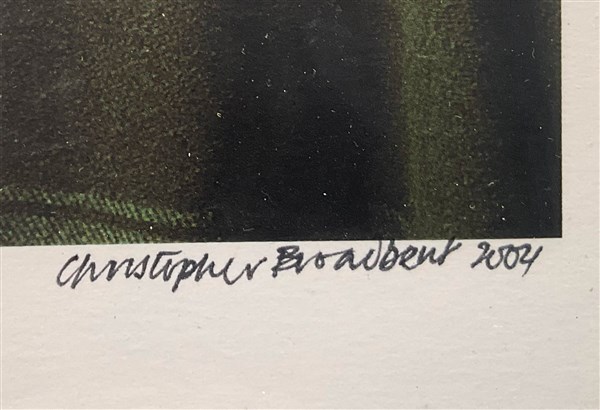 Christopher Broadbent 2004